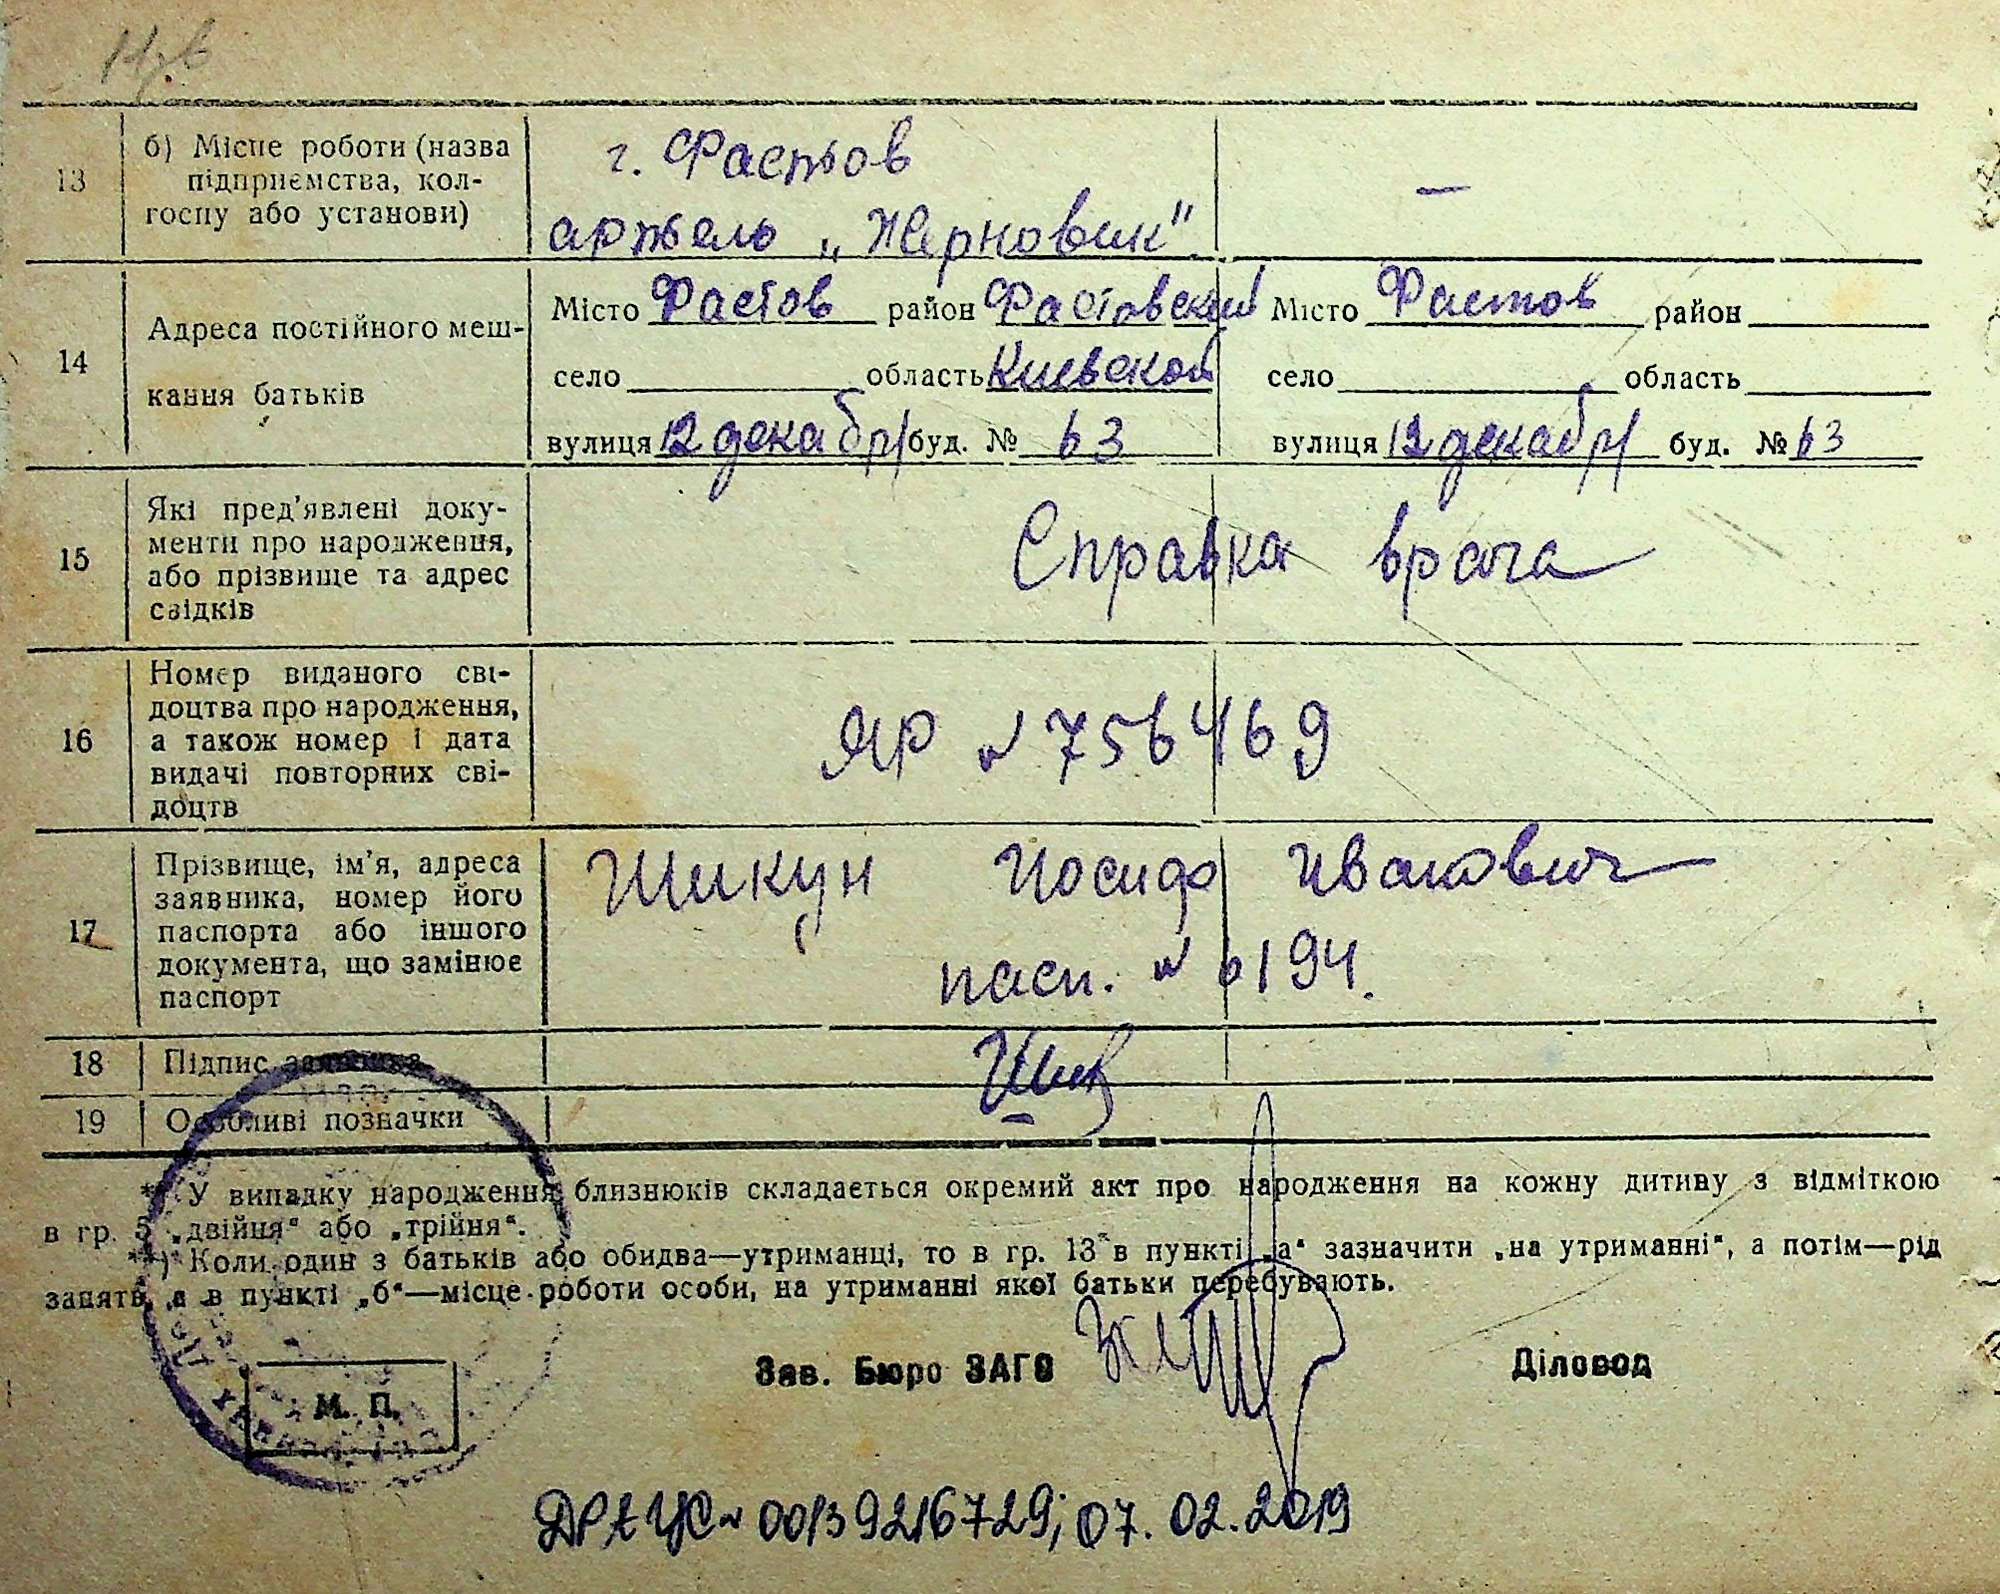 13
б) Місце роботи (назва
підприємства, кол-
госпу або установи)
г. Фастов
артель „Жерновик"
—
14
Адреса постійного меш-
кання батьків
Місто Фастов район Фастовский
село область Киевской
вулиця 12 декабря буд. № 63
Місто Фастов район
село область
вулиця 12 декабря буд. № 63
15
Які пред'явлені доку-
менти про народження,
або прізвище та адрес
свідків
Справка врача
16
Номер виданого сві-
доцтва про народження,
а також номер і дата
видачі повторних сві-
доцтв
ЯР № 756469
17
Прізвище, ім'я, адреса
заявника, номер його
паспорта або іншого
документа, що замінює
паспорт
Шикун Иосиф Иванович
пасп. № 6194.
18
Підпис заявника
19
Особливі позначки
*) У випадку народження близнюків складається окремий акт про народження на кожну дитину з відміткою
в гр. 5 „двійня" або „трійня".
**) Коли один з батьків або обидва—утриманці, то в гр. 13 в пункті „а" зазначити „на утриманні", а потім—рід
занять, а в пункті „б"—місце роботи особи, на утриманні якої батьки перебувають.
Зав. Бюро ЗАГС
Діловод
М. П.
ДРАЦС № 00139216729; 07. 02. 2019